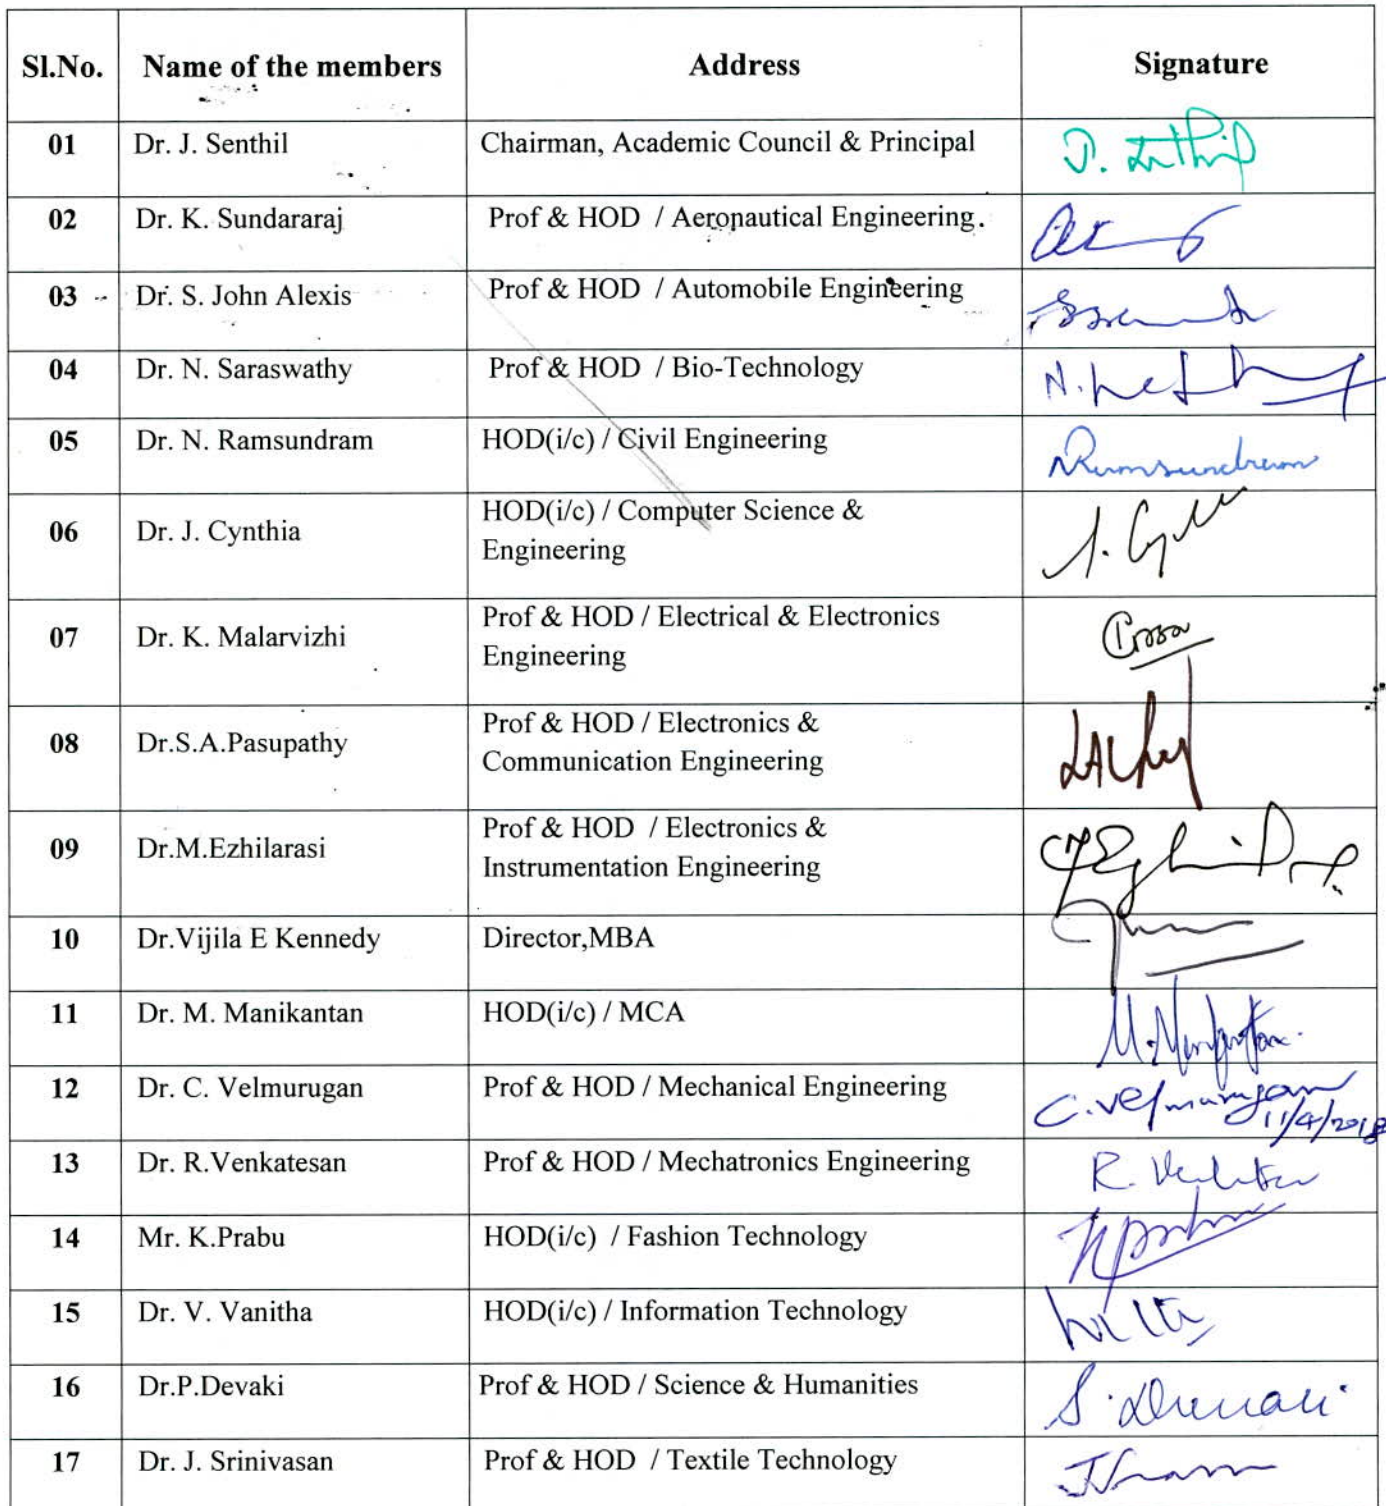 Sl.No. Name of the members Address Signature
01 Dr. J. Senthil Chairman, Academic Council & Principal J. Senthil
02 Dr. K. Sundararaj Prof & HOD / Aeronautical Engineering.
03 Dr. S. John Alexis Prof & HOD / Automobile Engineering
04 Dr. N. Saraswathy Prof & HOD / Bio-Technology
05 Dr. N. Ramsundram HOD(i/c) / Civil Engineering NRamsundram
06 Dr. J. Cynthia HOD(i/c) / Computer Science &
Engineering
07 Dr. K. Malarvizhi Prof & HOD / Electrical & Electronics
Engineering
08 Dr.S.A.Pasupathy Prof & HOD / Electronics &
Communication Engineering
09 Dr.M.Ezhilarasi Prof & HOD / Electronics &
Instrumentation Engineering
10 Dr.Vijila E Kennedy Director,MBA
11 Dr. M. Manikantan HOD(i/c) / MCA
12 Dr. C. Velmurugan Prof & HOD / Mechanical Engineering C. Velmurugan
11/4/2018
13 Dr. R.Venkatesan Prof & HOD / Mechatronics Engineering
14 Mr. K.Prabu HOD(i/c) / Fashion Technology
15 Dr. V. Vanitha HOD(i/c) / Information Technology
16 Dr.P.Devaki Prof & HOD / Science & Humanities
17 Dr. J. Srinivasan Prof & HOD / Textile Technology